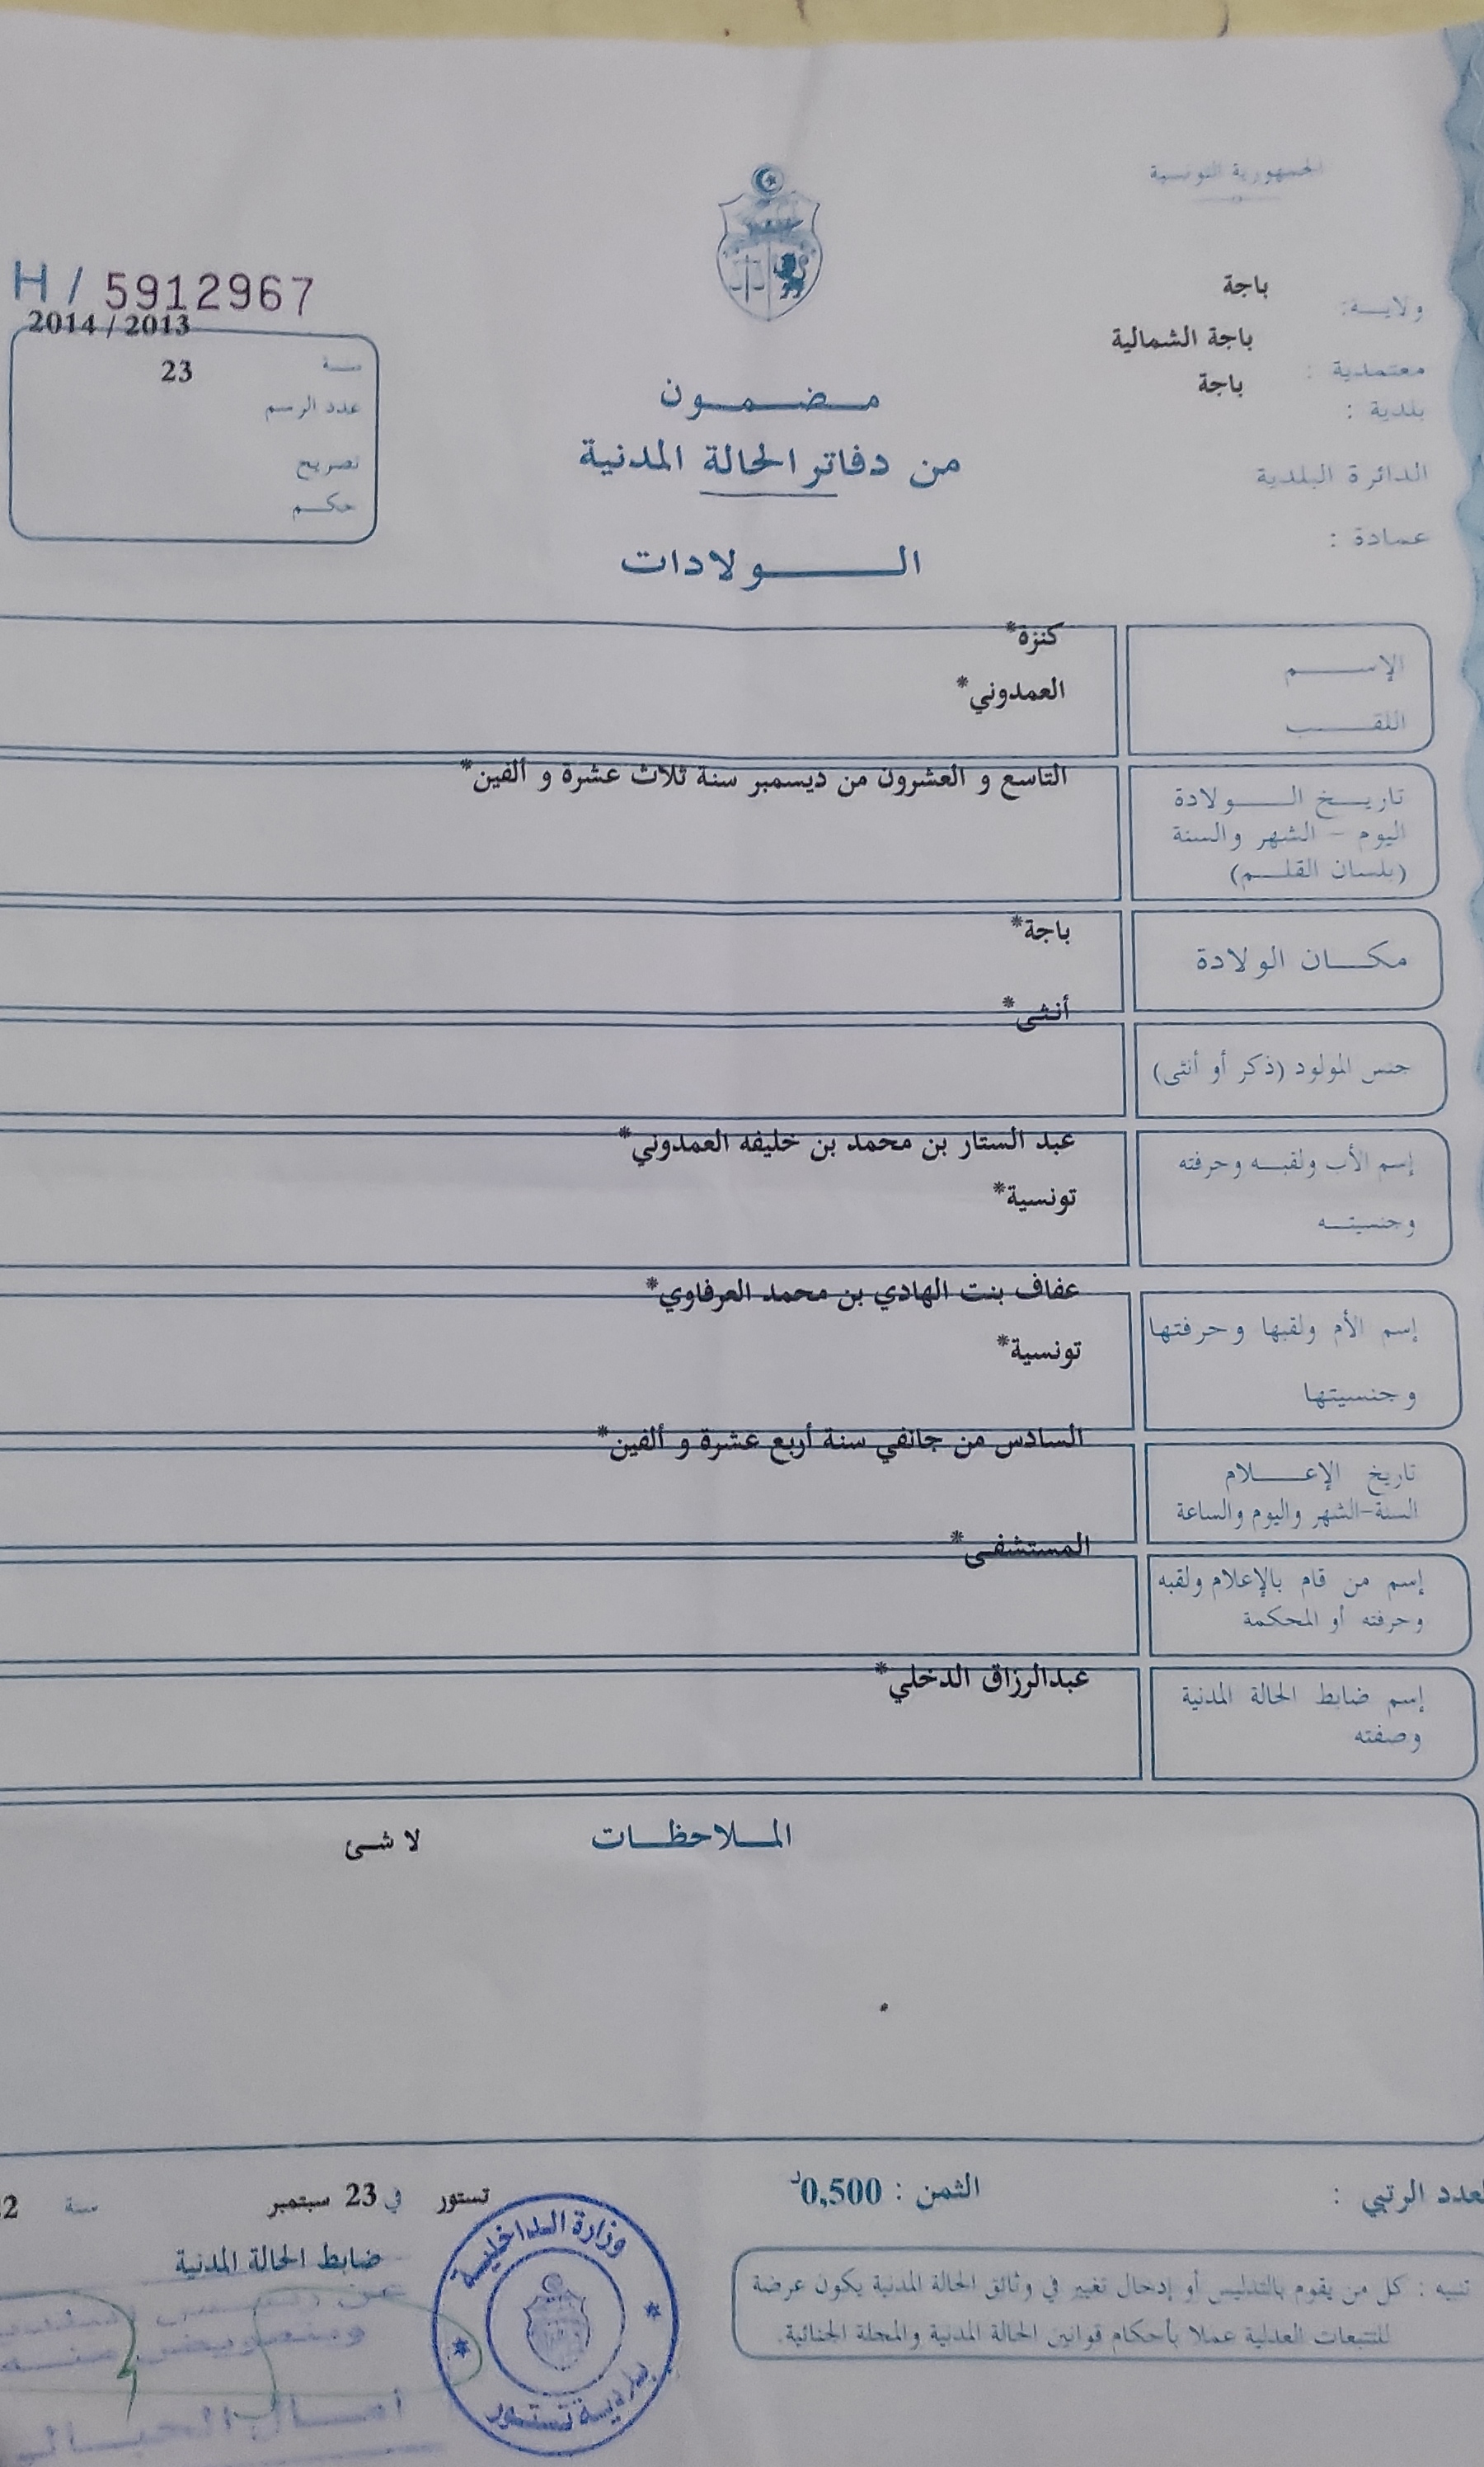 الجمهورية التونسية
ولايـــة: باجة
معتمدية : باجة الشمالية
بلدية : باجة
الدائرة البلدية
عمادة :
H / 5912967
2014 / 2013
سنة
23
عدد الرسم
تصريح
حكم
مضمون
من دفاتر الحالة المدنية
الولادات
الإسم كنزة*
اللقب العمدوني*
تاريخ الولادة التاسع و العشرون من ديسمبر سنة ثلاث عشرة و ألفين*
اليوم - الشهر والسنة
(بلسان القلم)
مكان الولادة باجة*
أنثى*
جنس المولود (ذكر أو أنثى)
إسم الأب ولقبه وحرفته عبد الستار بن محمد بن خليفه العمدوني*
وجنسيته تونسية*
إسم الأم ولقبها وحرفتها عفاف بنت الهادي بن محمد العرفاوي*
وجنسيتها تونسية*
تاريخ الإعلام السادس من جانفي سنة أربع عشرة و ألفين*
السنة-الشهر واليوم والساعة
المستشفى*
إسم من قام بالإعلام ولقبه
وحرفته أو المحكمة
إسم ضابط الحالة المدنية عبدالرزاق الدخلي*
وصفته
الملاحظات لا شئ
العدد الرتبي :
الثمن : 0,500د
تستور في 23 سبتمبر سنة
ضابط الحالة المدنية
تنبيه : كل من يقوم بالتدليس أو إدخال تغيير في وثائق الحالة المدنية يكون عرضة
للتتبعات العدلية عملا بأحكام قوانين الحالة المدنية والمجلة الجنائية.
وزارة الداخلية
بلدية تستور
وبتفويض منه